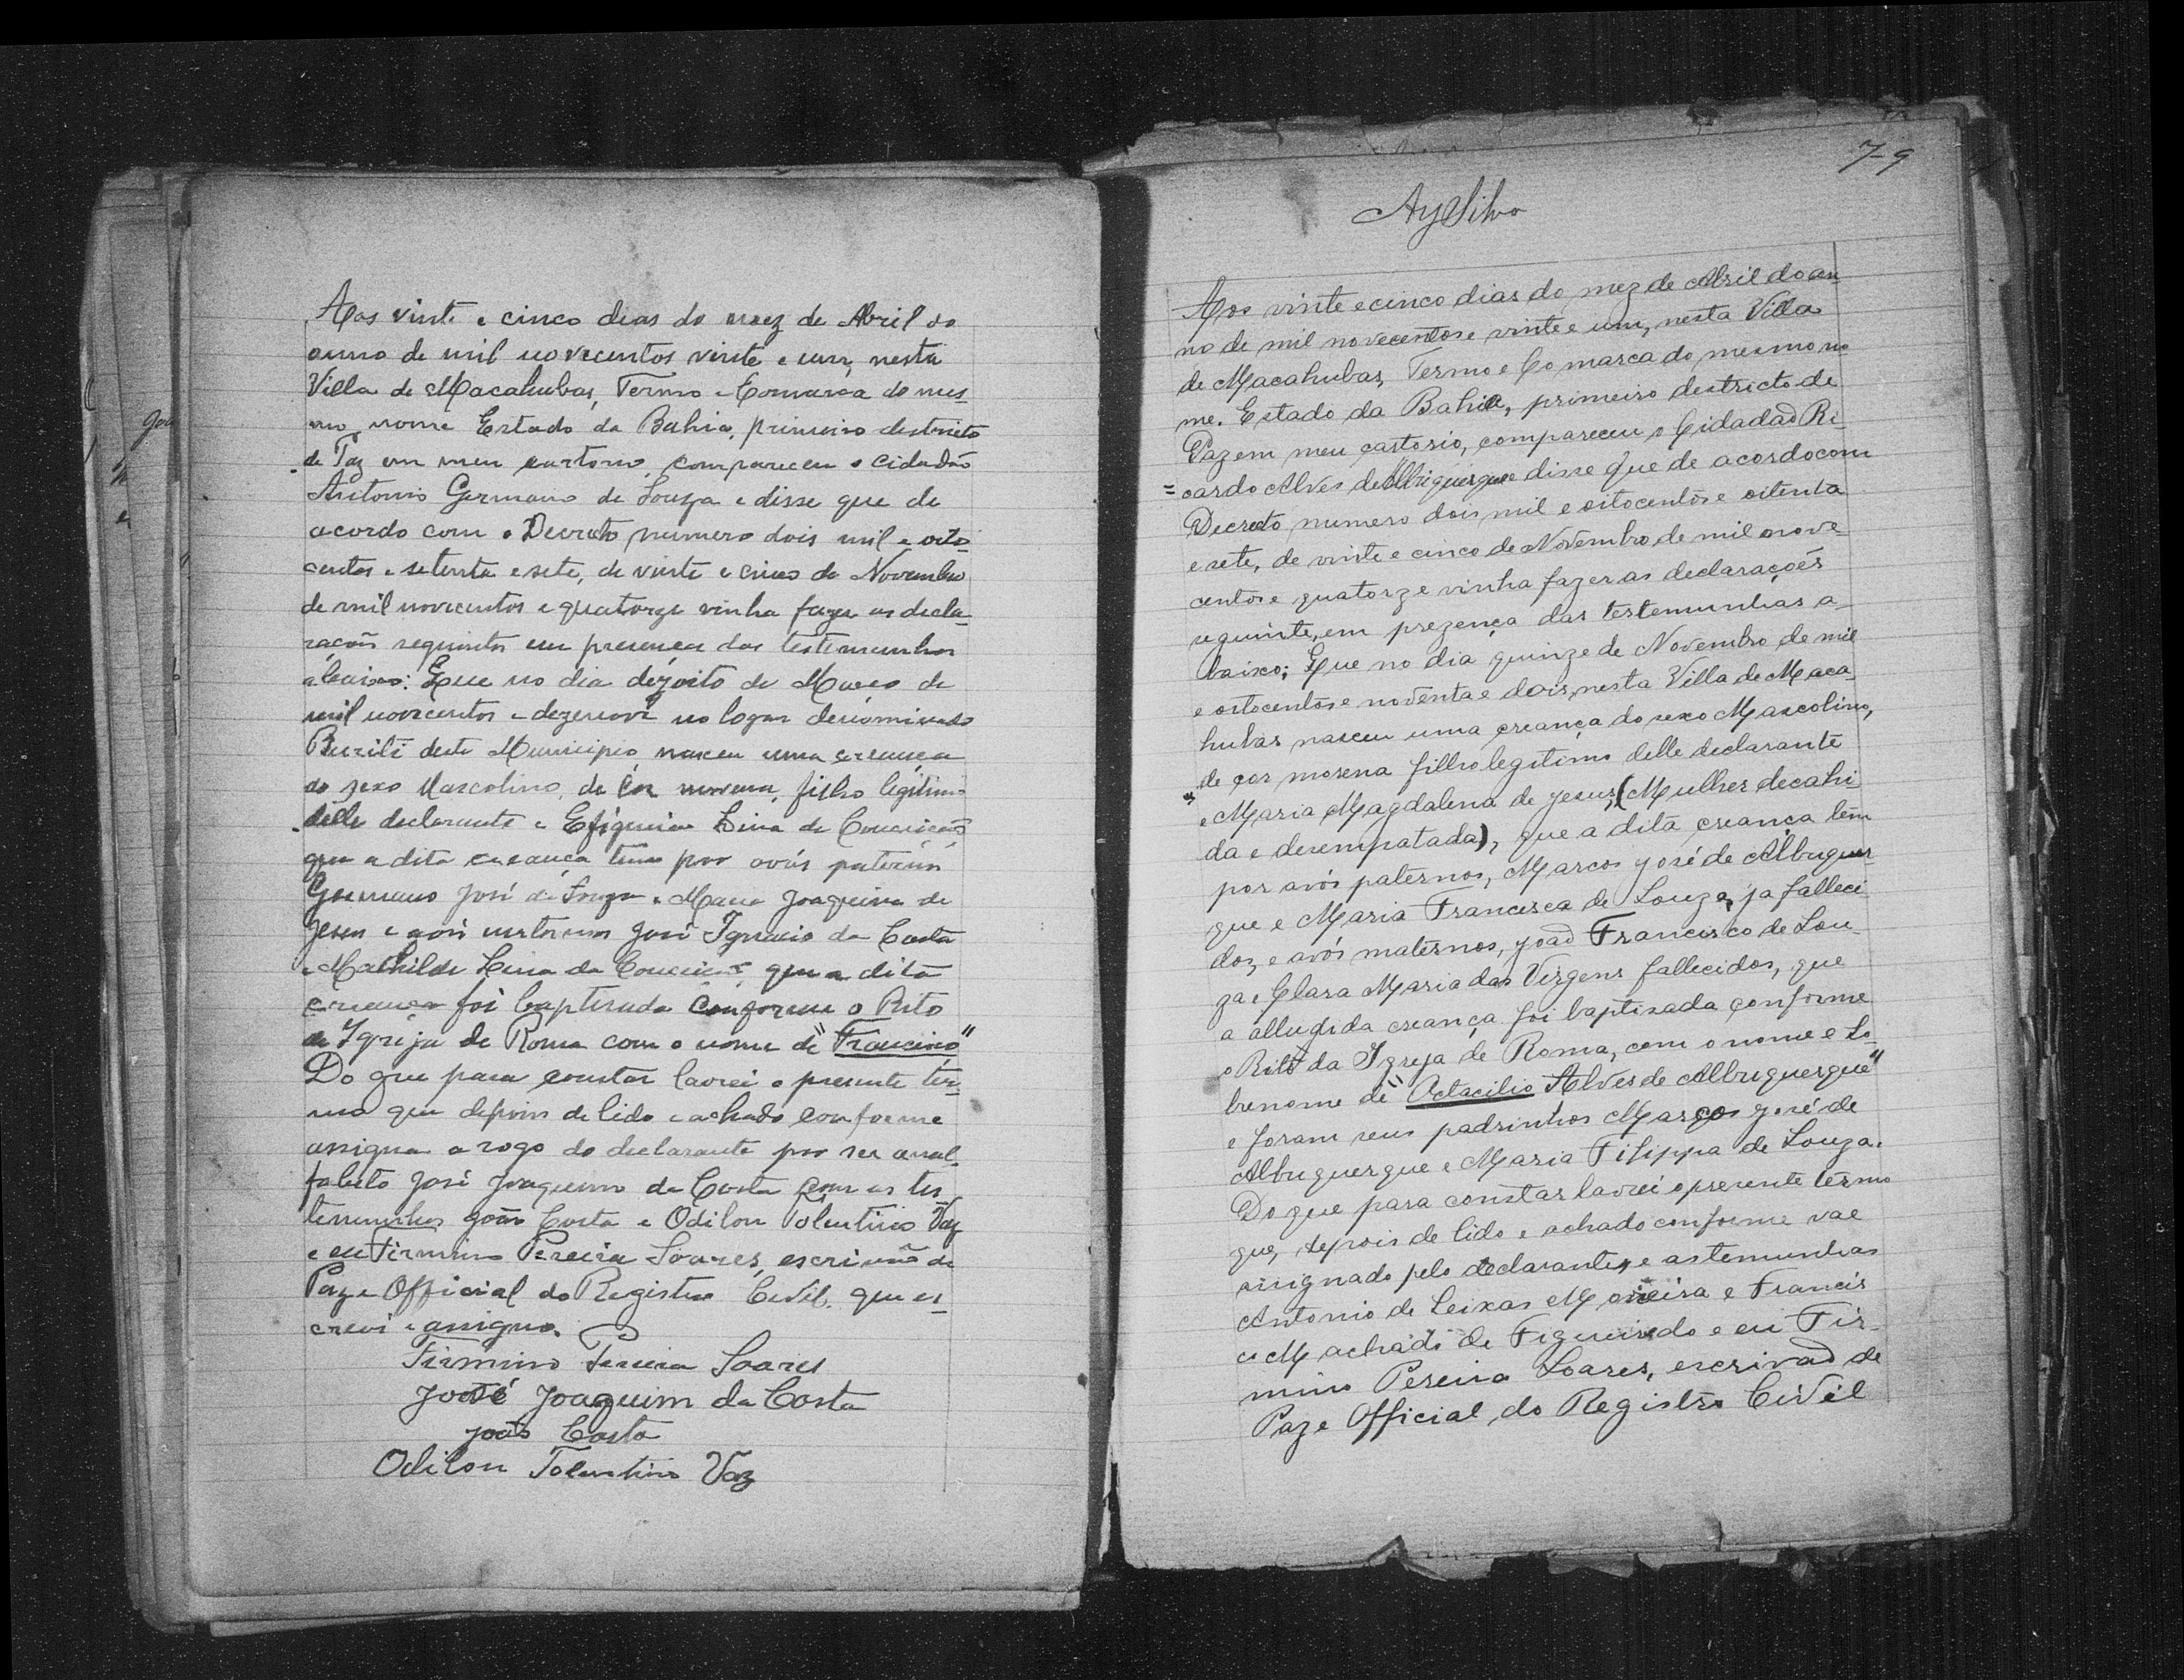 Aos vinte e cinco dias do mez de Abril do
anno de mil novecentos vinte e um, nesta
Villa de Macahubas, Termo e Comarca do mes-
mo nome Estado da Bahia, primeiro destricto
de Paz em meu cartorio, compareceu o cidadão
Antonio Germano de Souza e disse que de
acordo com o Decreto numero dois mil e oito-
centos e setenta e sete, de vinte e cinco de Novembro
de mil novecentos e quatorze vinha fazer as decla-
rações seguintes em presença das testemunhas
abaixo: Que no dia dezoito de Março de
mil novecentos e dezenove no logar denominado
Buriti deste Municipio, nasceu uma creança
do sexo Mascolino, de cor morena, filho legitimo
delle declarante e Efigenia Lina da Conceição
que a dita creança tem por avós paternos
Germano José de Souza e Maria Joaquina de
Jesus e avós maternos José Ignacio da Costa
e Mathilde Lina da Conceição que a dita
creança foi baptisada conforme o Rito
da Igreja de Roma com o nome de "Francisco"
Do que para constar lavrei o presente ter-
mo que depois de lido e achado conforme
assigna a rogo do declarante por ser anal-
fabeto José Joaquim da Costa com as tes-
temunhas João Costa e Odilon Tolentino Vaz
e eu Firmino Pereira Soares, escrivão de
Paz e Official do Registro Civil, que es-
crevi e assigno.
Firmino Pereira Soares
José Joaquim da Costa
João Costa
Odilon Tolentino Vaz
7-9
Aos vinte e cinco dias do mez de Abril do an-
no de mil novecentos e vinte e um, nesta Villa
de Macahubas, Termo e Comarca do mesmo no
me. Estado da Bahia, primeiro destricto de
Paz em meu cartorio, compareceu o Cidadaõ Ri-
=cardo Alves de Albuquerque disse que de acordo com
Decreto numero dois mil e oitocentos e oitenta
e sete, de vinte e cinco de Novembro de mil nove-
centos e quatorze vinha fazer as declarações
seguinte, em prezença das testemunhas a-
baixo; Que no dia quinze de Novembro de mil
e oitocentos e noventa e dois, nesta Villa de Maca-
hubas nasceu uma creança do sexo Mascolino,
de cor morena filho legitimo delle declarante
e Maria Magdalena de Jesus, (Mulher decahi-
da e desempatada), que a dita creança tem
por avós paternos, Marcos José de Albuquer-
que e Maria Francisca de Souza, ja falleci-
dos, e avós maternos, Joaõ Francisco de Sou-
za e Clara Maria das Virgens fallecidos, que
a alludida creança foi baptisada conforme
o Rito da Igreja de Roma, com o nome e so-
brenome de "Octacilio Alves de Albuquerque"
e foram seus padrinhos Marcos José de
Albuquerque e Maria Filippa de Souza.
Do que para constar lavrei o presente termo
que, depois de lido e achado conforme vae
assignado pelo declarante, e as temunhas
Antonio de Seixas Moreira e Francis
co Machado de Figueiredo e eu Fir-
mino Pereira Soares, escrivaõ de
Paz e Official do Registro Civil